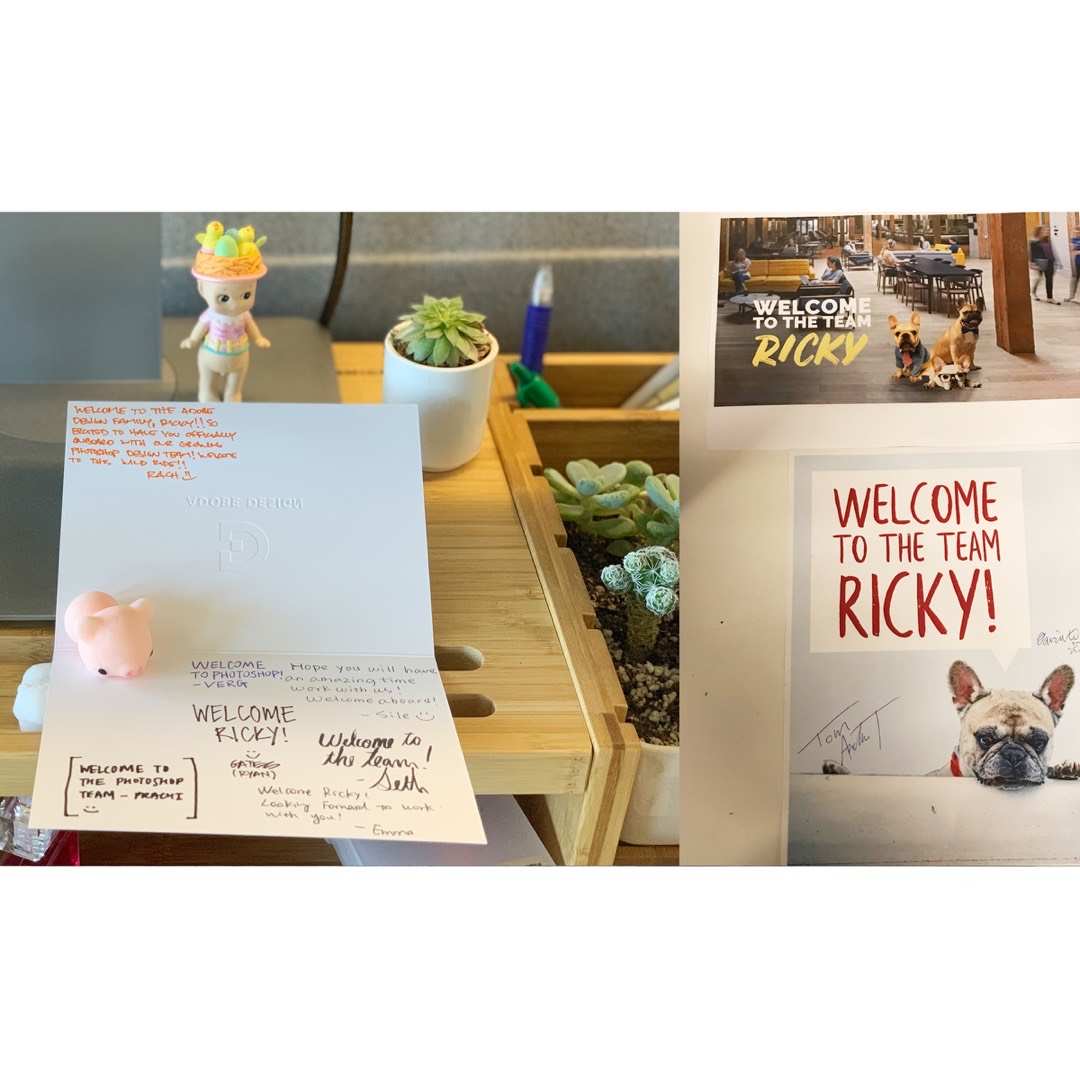 WELCOME TO THE ADOBE
DESIGN FAMILY, RICKY!! SO
EXCITED TO HAVE YOU OFFICIALLY
ONBOARD WITH OUR GROWING
PHOTOSHOP DESIGN TEAM! WELCOME
TO THE WILD RIDE!!
RACH
ADOBE DESIGN
D
WELCOME
TO PHOTOSHOP!
- VERG
Hope you will have
an amazing time
work with us!
Welcome aboard!
- Sile
WELCOME
RICKY!
GATES
(RYAN)
Welcome to
the team!
- Seth
WELCOME TO
THE PHOTOSHOP
TEAM - PRACHI
Welcome Ricky!
Looking Forward to work
with you!
- Emma
WELCOME
TO THE TEAM
RICKY
WELCOME
TO THE TEAM
RICKY!
Tom